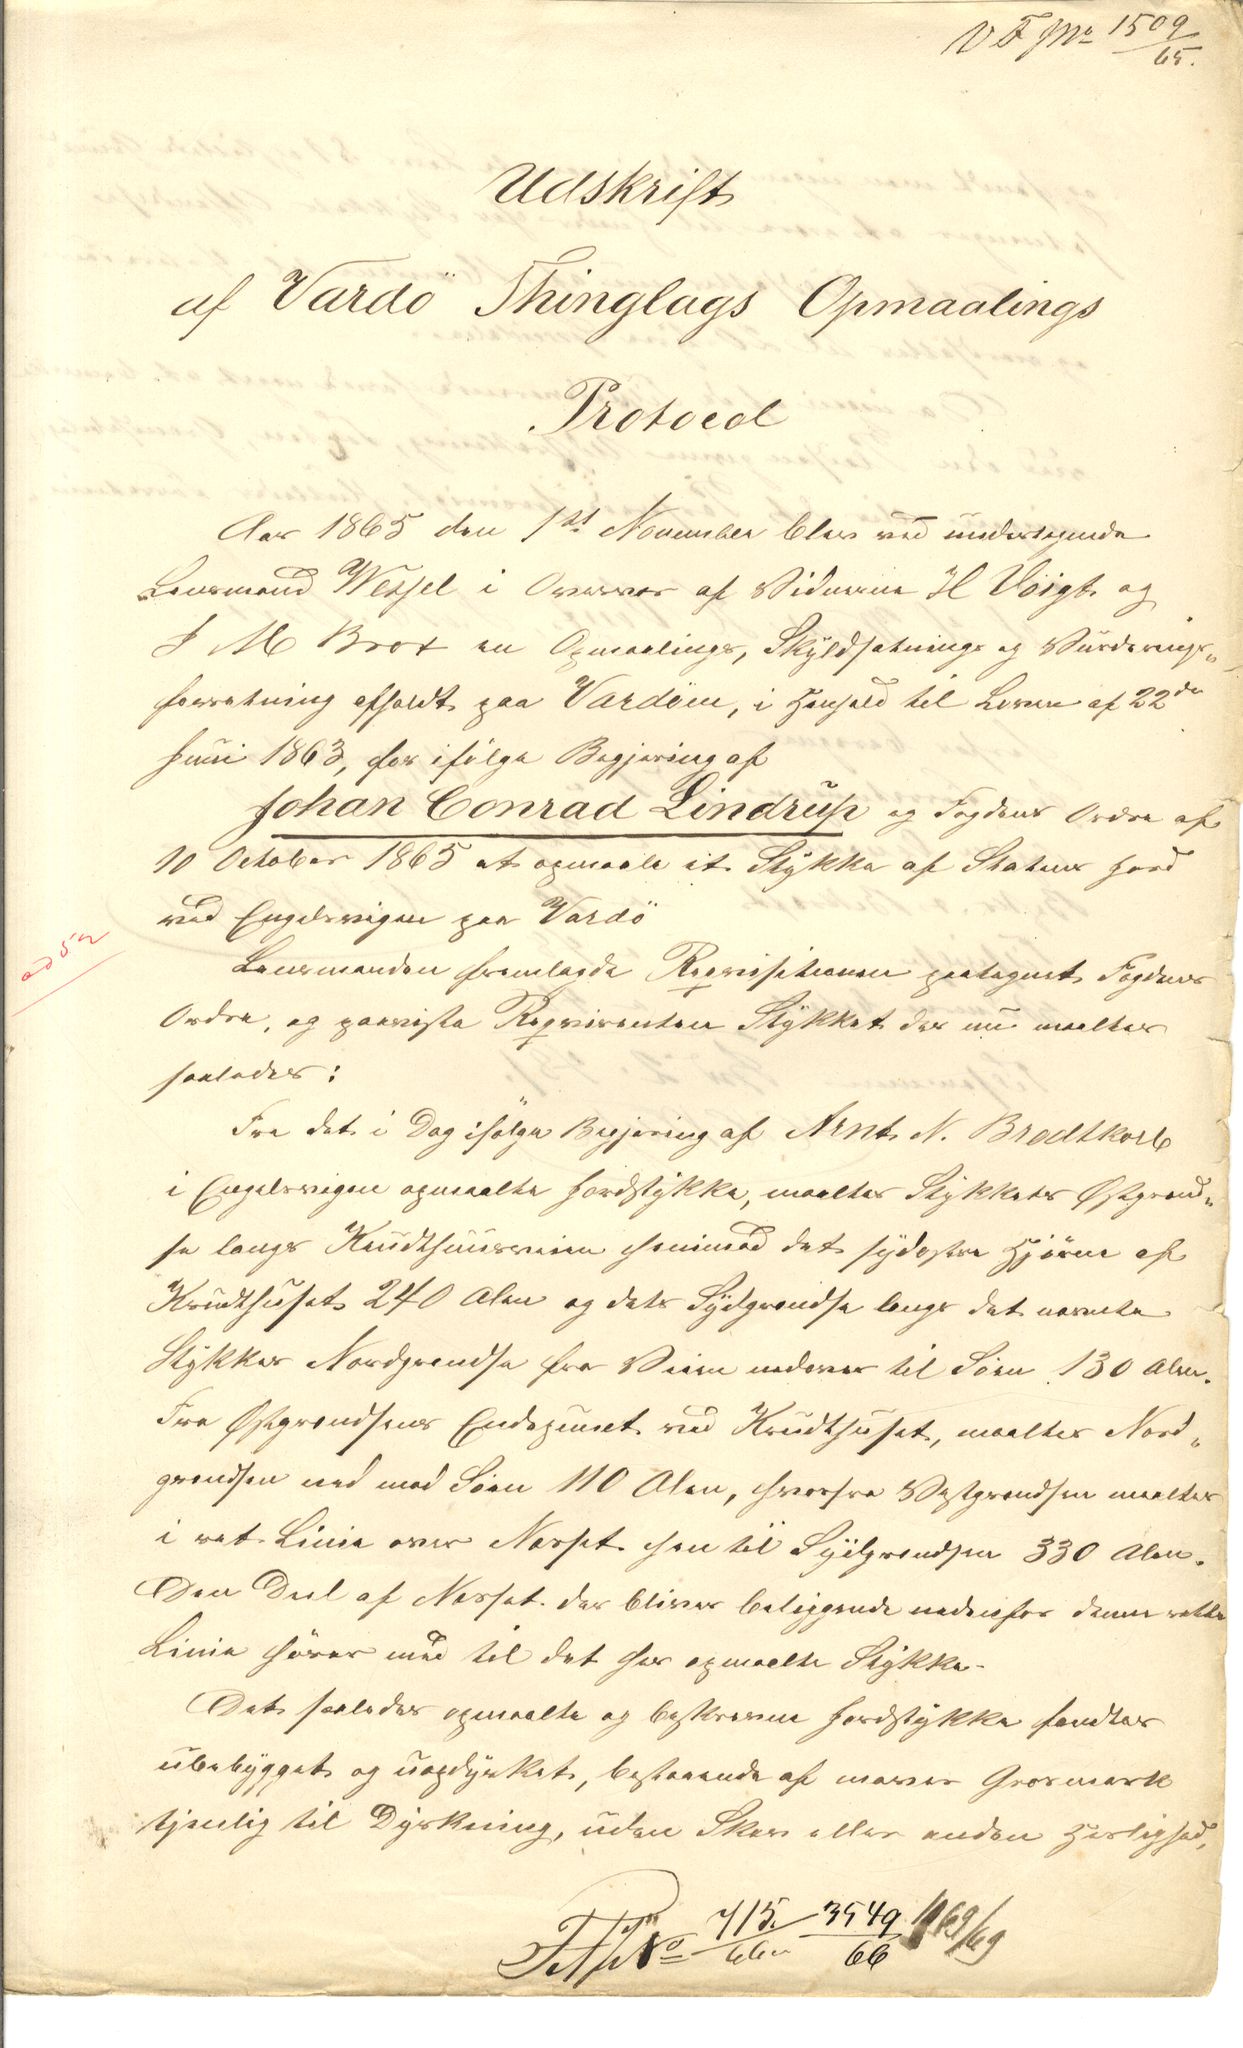 V F J No 1509/65.
Udskrift
af Vardö Thinglags Opmaalings
Protocol
Aar 1865 den 1st November blev ved undertegnede
Lensmand Wessel i Overvær af Vidnerne H Voigt og
J M Brox en Opmaalings, Skyldsætnings og Vurderings„
forretning afholdt paa Vardöen, i Henhold til Loven af 22de
Juni 1863, for ifölge Begjæring af
Johan Conrad Lindrup og Fogdens Ordre af
10 October 1865 at opmaale et Stykke af Statens Jord
ved Engelsvigen paa Vardö
Lensmanden fremlagde Reqvisitionen paategnet Fogdens
Ordre, og paaviste Reqvirenten Stykket der nu maaltes
saaledes:
Fra det i Dag ifölge Begjæring af Arnt N. Bredtkorb
i Engelsvigen opmaalte Jordstykke, maaltes Stykkets Østgrænd„
se langs Krudthuusveien henimod det sydostre Hjörne af
Krudthuset 240 Alen og dets Sydgrændse langs det nævnte
Stykkes Nordgrændse fra Veien nedover til Söen 130 Alen.
Fra Østgrændsens Endepunct ved Krudthuset, maaltes Nord„
grændsen ned mod Söen 110 Alen, hvorfra Vestgrændsen maaltes
i ret Linie over Næsset hen til Sydgrændsen 330 Alen.
Den Deel af Næsset der bliver beliggende nedenfor denne rette
Linie hörer med til det her opmaalte Stykke.
Det saaledes opmaalte og beskrevne Jordstykke fandtes
ubebygget og uopdyrket, bestaaende af maver Græsmark
tjenlig til Dyrkning, uden Skov eller anden Herlighed,
ad 52
No 715/66 3549/66 1969/69